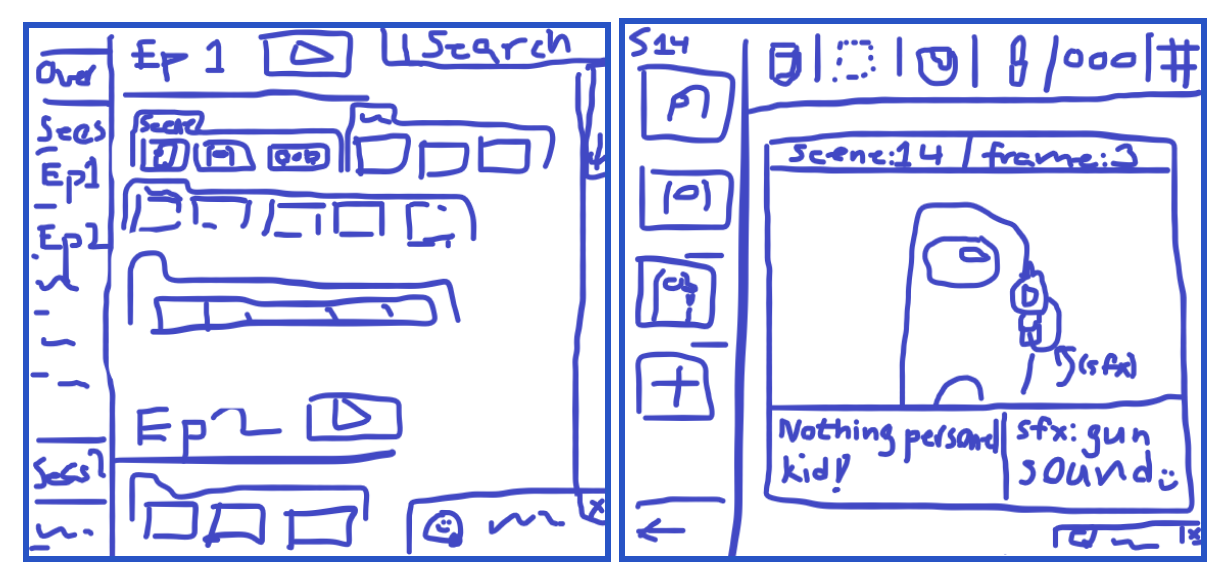 Over
Secs
Ep1
Ep2
Secs2
Ep 1
Search
Scene
Ep 2
S14
scene:14 / frame:3
(sfx)
Nothing personal
kid!
sfx: gun
sound